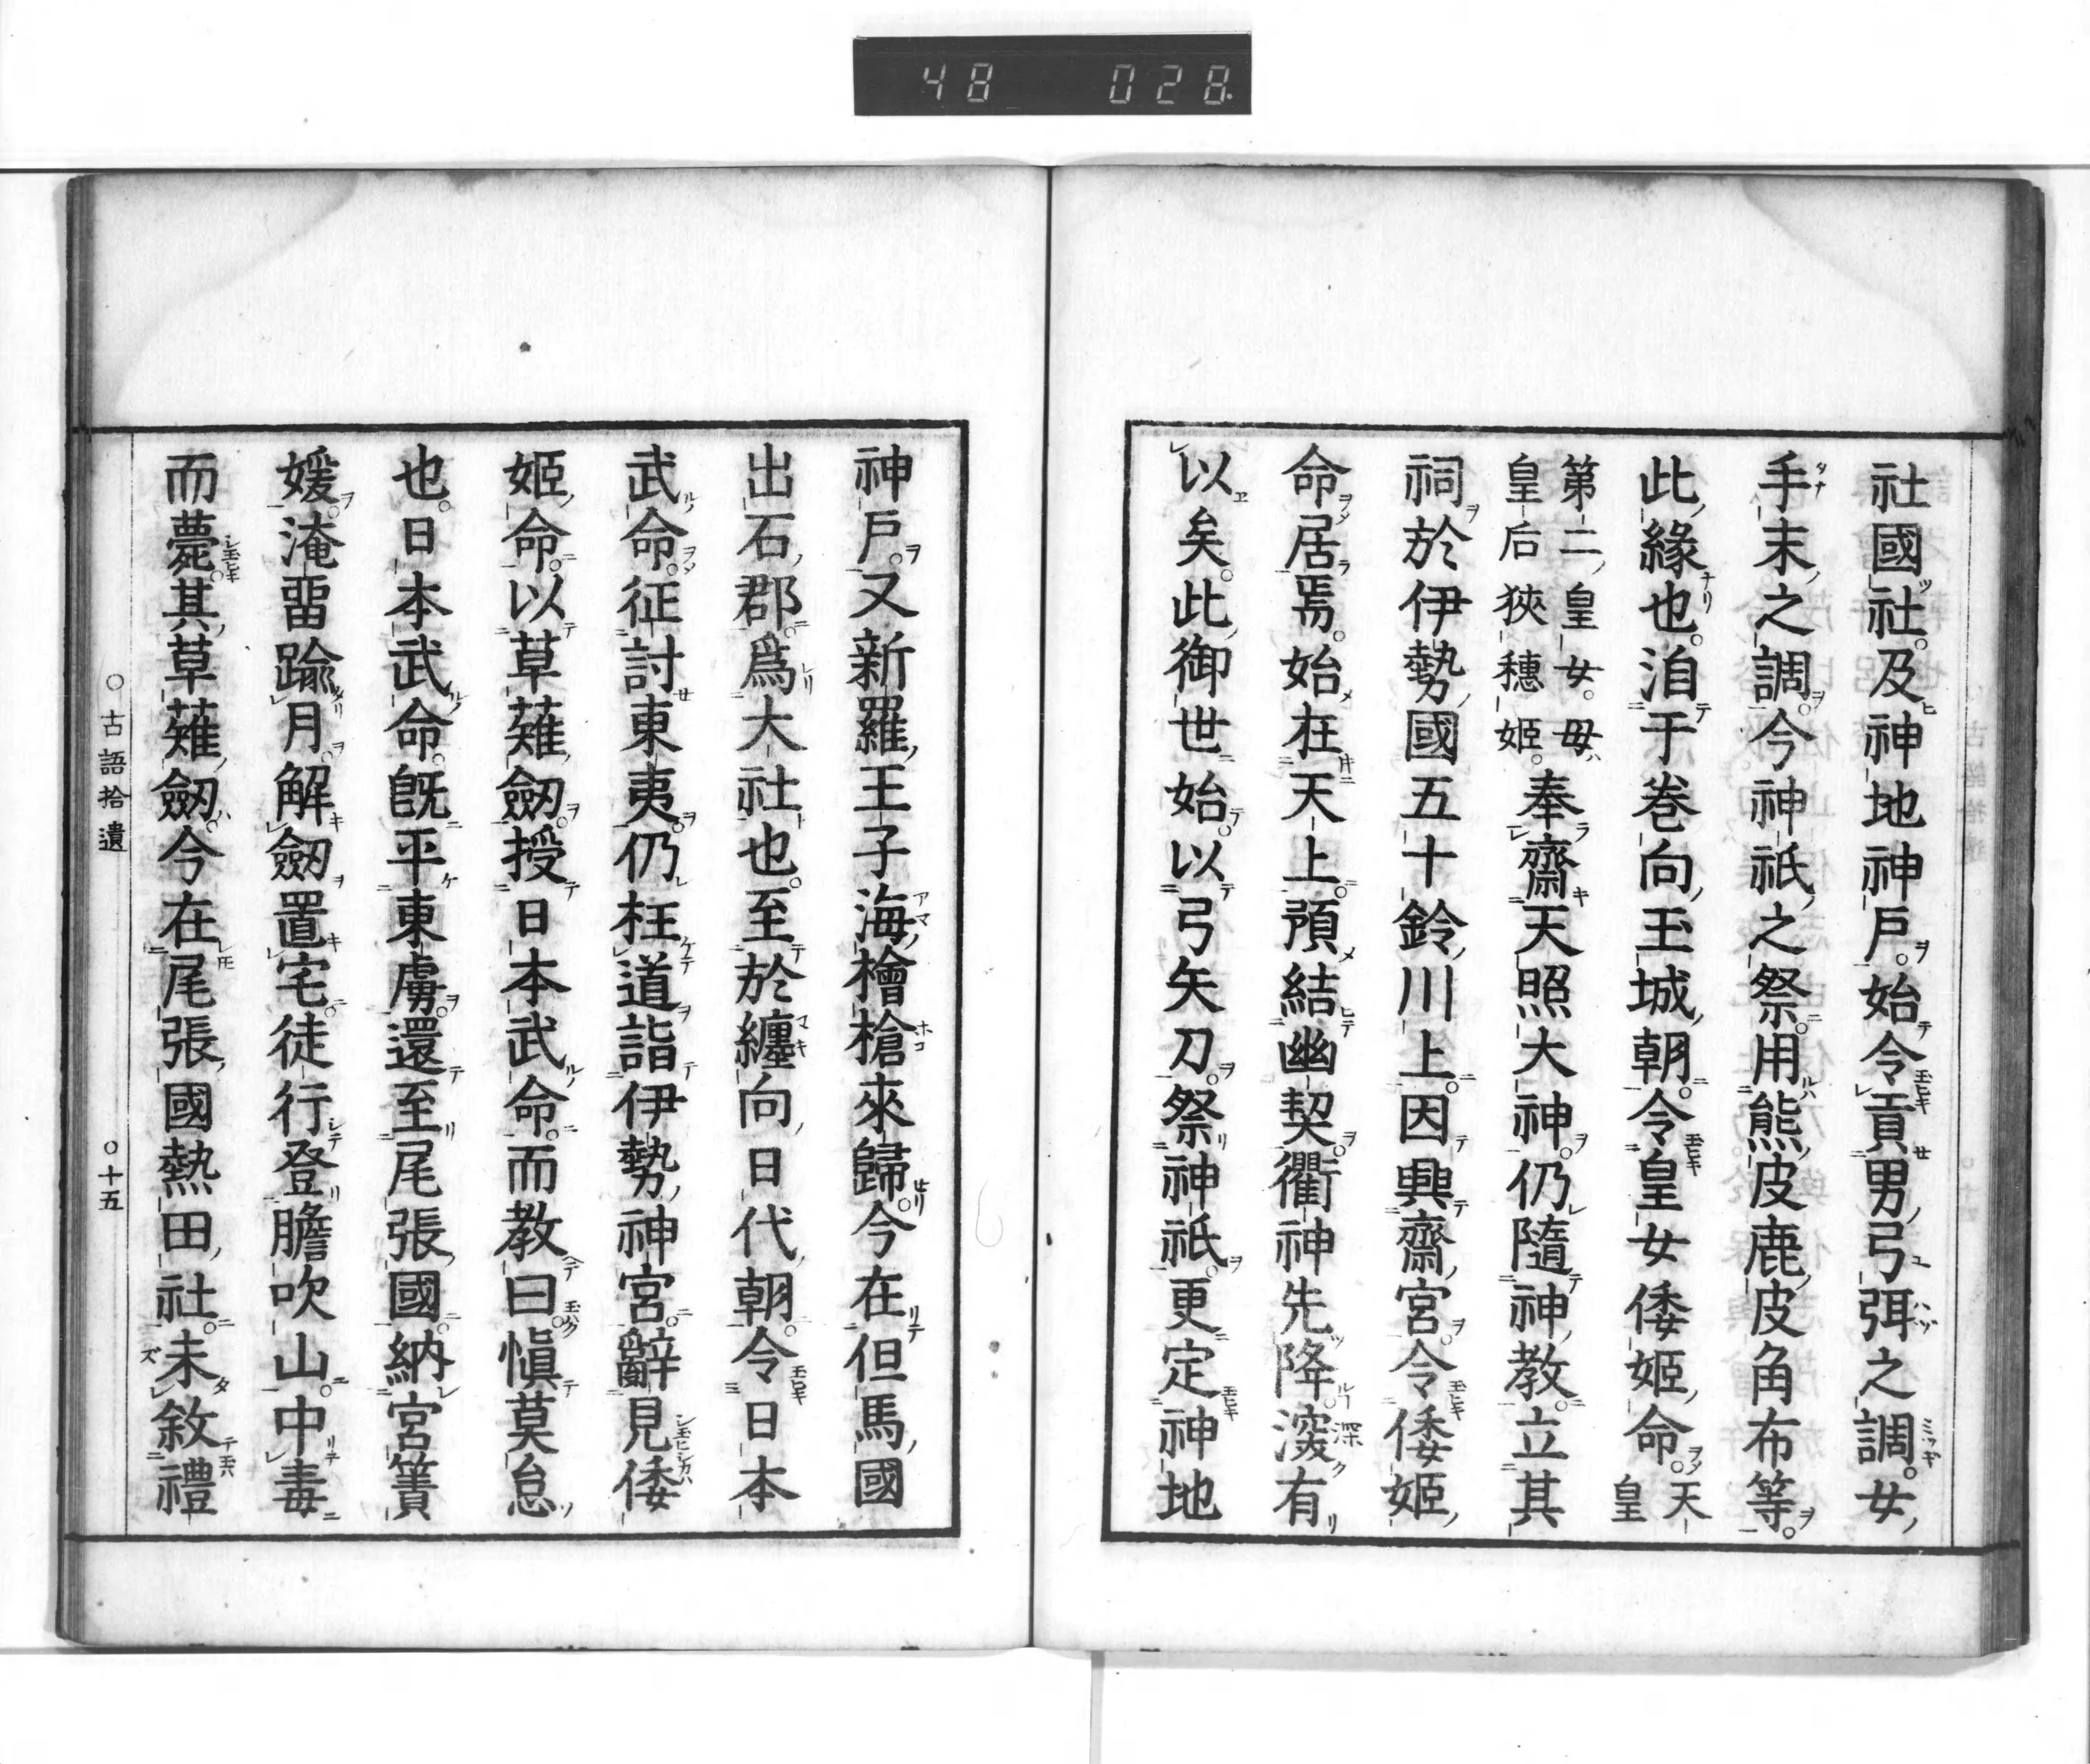 48 028
社國社。及神地神戸。始令貢男弓弭之調。女
手末之調。今神祇之祭。用熊皮鹿皮角布等。
此緣也。洎于巻向玉城朝。令皇女倭姬命。天皇
第二皇女。母皇后狹穗姬。奉齋天照大神。仍隨神教。立其
祠於伊勢國五十鈴川上。因興齋宮。令倭姬
命居焉。始在天上。預結幽契。衢神先降。深有
以矣。此御世始。以弓矢刀。祭神祇。更定神地
神戸。又新羅王子海檜槍來歸。今在但馬國
出石郡。爲大社也。至於纏向日代朝。令日本
武命。征討東夷。仍枉道詣伊勢神宮。辭見倭
姬命。以草薙劒。授日本武命。而教曰。愼莫怠
也。日本武命。既平東虜。還至尾張國。納宮簀
媛。淹畱踰月。解劒置宅。徒行登膽吹山。中毒
而薨。其草薙劒。今在尾張國熱田社。未敘禮
○古語拾遺 ○十五